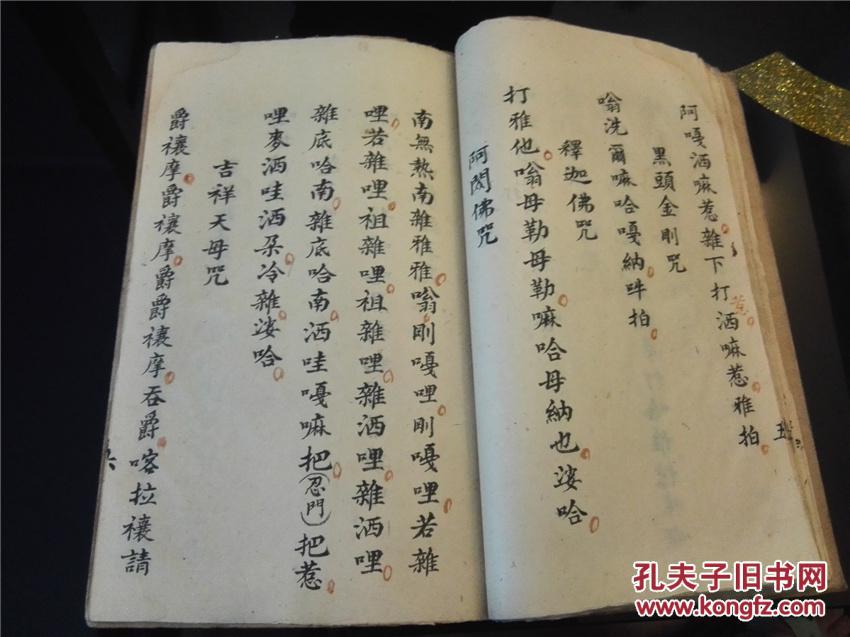 阿嘎洒嘛惹雜下打洒嘛惹雅拍
黑頭金剛咒
嗡洗爾嘛哈嘎納吽拍
釋迦佛咒
打雅他嗡母勒母勒嘛哈母納也娑哈
阿閦佛咒
南無熱南雜雅雅嗡剛嘎哩剛嘎哩若雜
哩若雜哩祖雜哩祖雜哩雜洒哩雜洒哩
雜底哈南雜底哈南洒哇嘎嘛把(忍門)把惹
哩麥洒哇洒朶冷雜娑哈
吉祥天母咒
爵禳摩爵禳摩爵爵禳摩吞爵喀拉禳請
孔夫子旧书网
www.kongfz.com